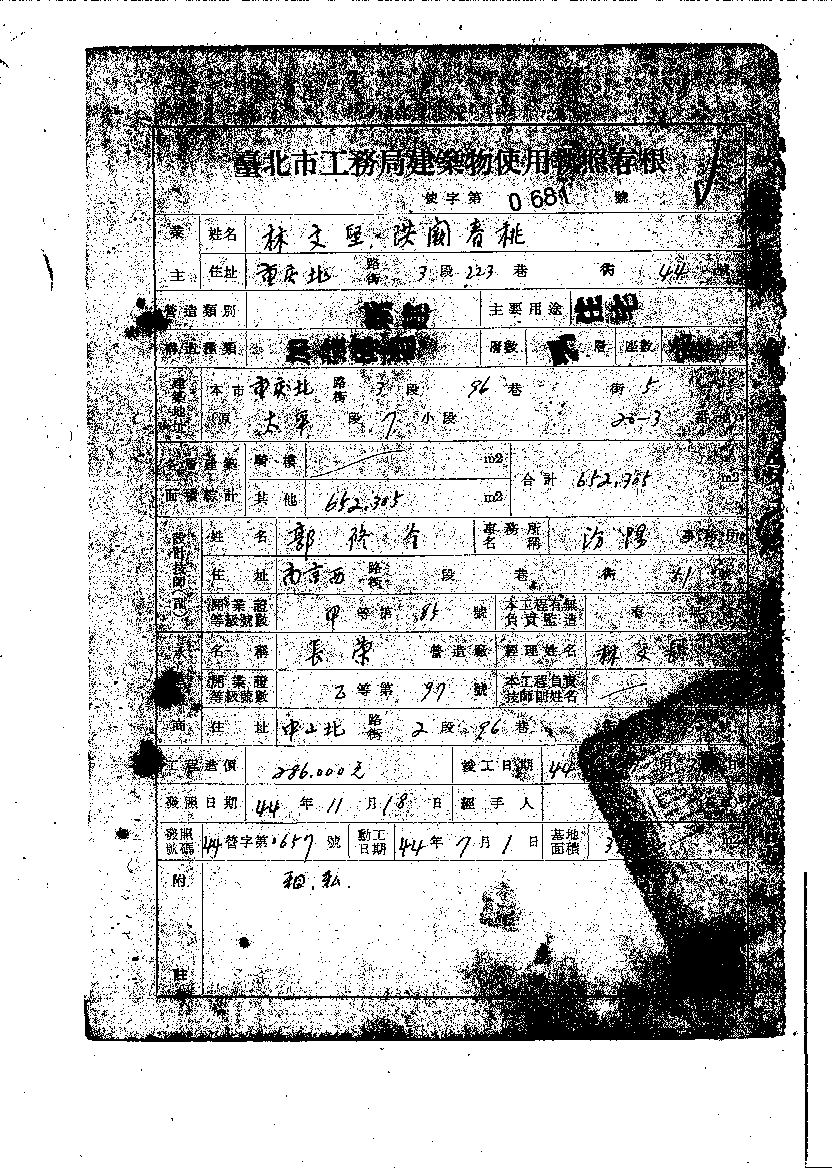 臺北市工務局建築物使用執照存根
使字第 0681 號
業主 姓名 林文堅、洪闺春桃
住址 重慶北 路街 3 段 223 巷 衖 44 號
營造類別 新建 主要用途 住宅
構造種類 加強磚造 層數 層 座數
建築地址 本市 重慶北 路街 3 段 96 巷 衖 5
太平 段 7 小段 26-3
騎樓 m2
合計 652.305 m2
面積總計 其他 652.305 m2
姓名 郭 事務所名稱 汾陽 事務所
住址 南京西 路街 段 巷 衖 41
開業證等級號數 甲 等第 85 號 本工程有無負責監造 有
名稱 長榮 營造廠 經理姓名 林文
開業證等級號數 乙 等第 97 號 本工程負責技師開姓名
住址 中山北 路街 2 段 96 巷
工程造價 286.000元 竣工日期 44
發照日期 44 年 11 月 18 日 經手人
發照號碼 44 營字第 0657 號 動工日期 44 年 7 月 1 日 基地面積 3
附註 租.私.